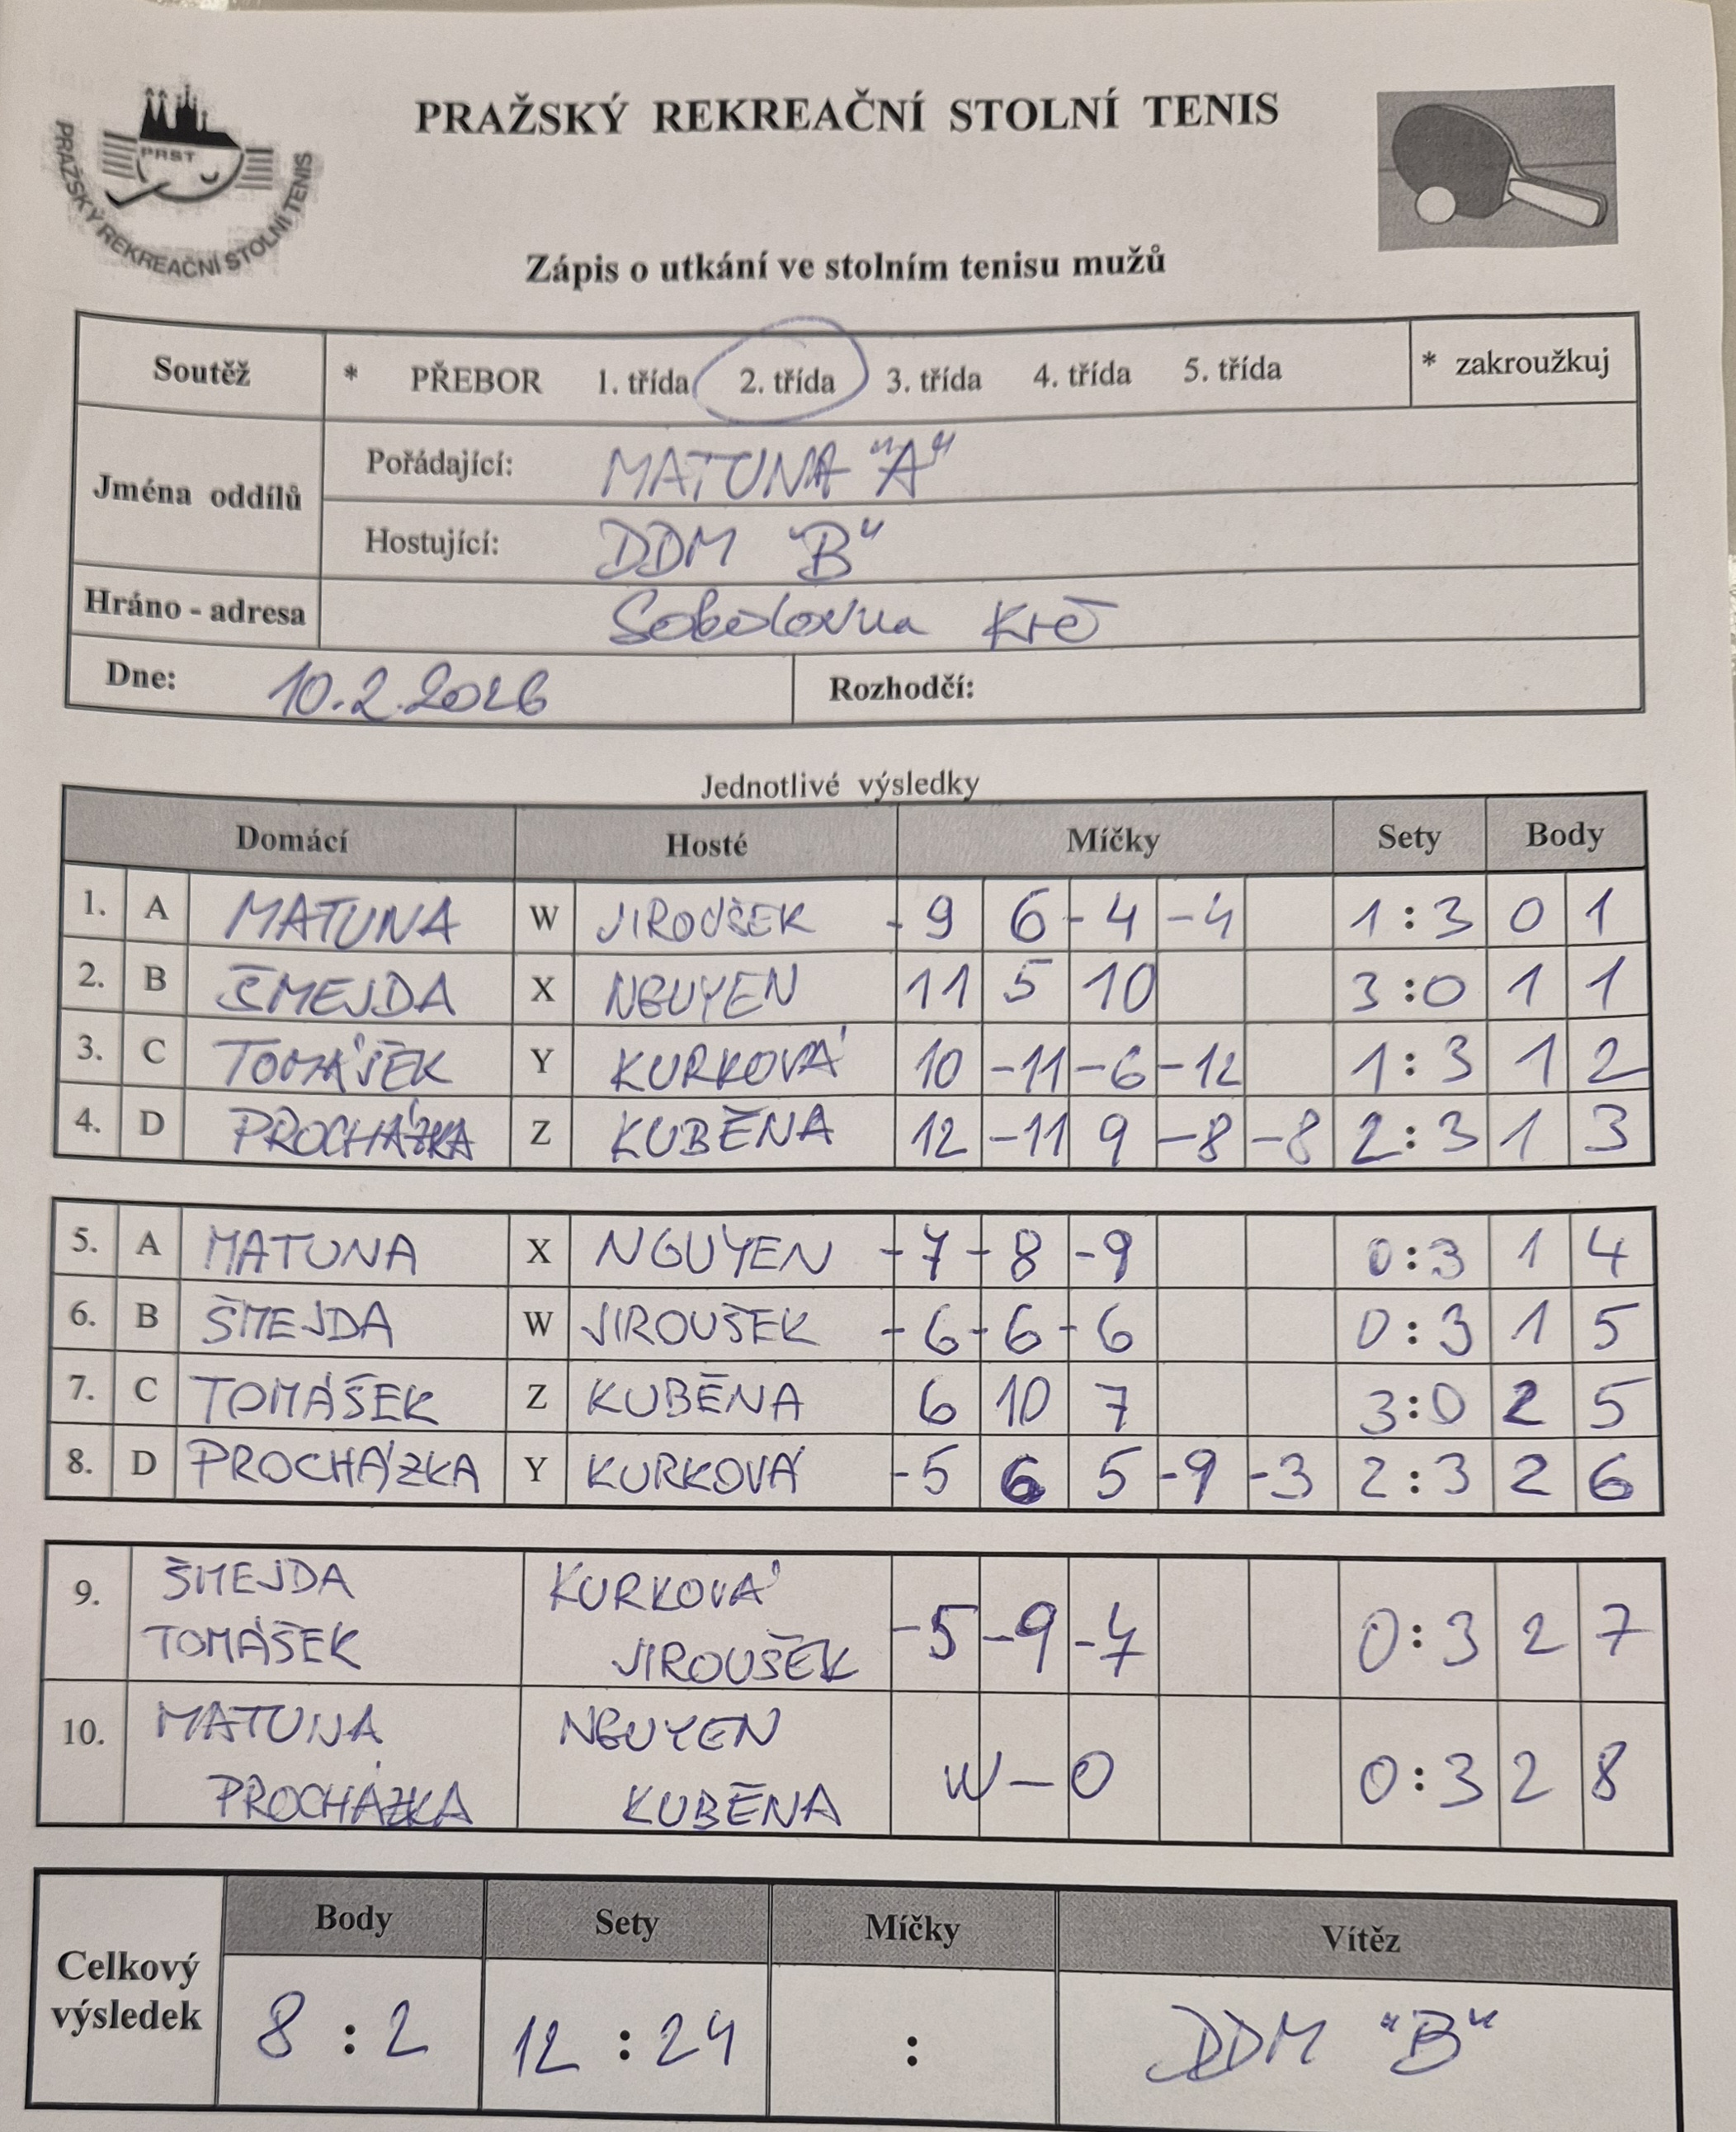 PRAŽSKÝ REKREAČNÍ STOLNÍ TENIS
PRST
PRAŽSKÝ REKREAČNÍ STOLNÍ TENIS
Zápis o utkání ve stolním tenisu mužů
Soutěž * PŘEBOR 1. třída 2. třída 3. třída 4. třída 5. třída * zakroužkuj
Jména oddílů
Pořádající: MATUNA "A"
Hostující: DDM "B"
Hráno - adresa Sokolovna Krč
Dne: 10.2.2026 Rozhodčí:
Jednotlivé výsledky
Domácí Hosté Míčky Sety Body
1. A MATUNA W JIROUŠEK -9 6 -4 -4 1:3 0 1
2. B ŠMEJDA X NGUYEN 11 5 10 3:0 1 1
3. C TOMÁŠEK Y KURKOVÁ 10 -11 -6 -12 1:3 1 2
4. D PROCHÁZKA Z KUBĚNA 12 -11 9 -8 -8 2:3 1 3
5. A MATUNA X NGUYEN -7 -8 -9 0:3 1 4
6. B ŠMEJDA W JIROUŠEK -6 -6 -6 0:3 1 5
7. C TOMÁŠEK Z KUBĚNA 6 10 7 3:0 2 5
8. D PROCHÁZKA Y KURKOVÁ -5 6 5 -9 -3 2:3 2 6
9. ŠMEJDA KURKOVÁ
TOMÁŠEK JIROUŠEK -5 -9 -7 0:3 2 7
10. MATUNA NGUYEN
PROCHÁZKA KUBĚNA W-O 0:3 2 8
Celkový výsledek
Body Sety Míčky Vítěz
8 : 2 12 : 24 : DDM "B"